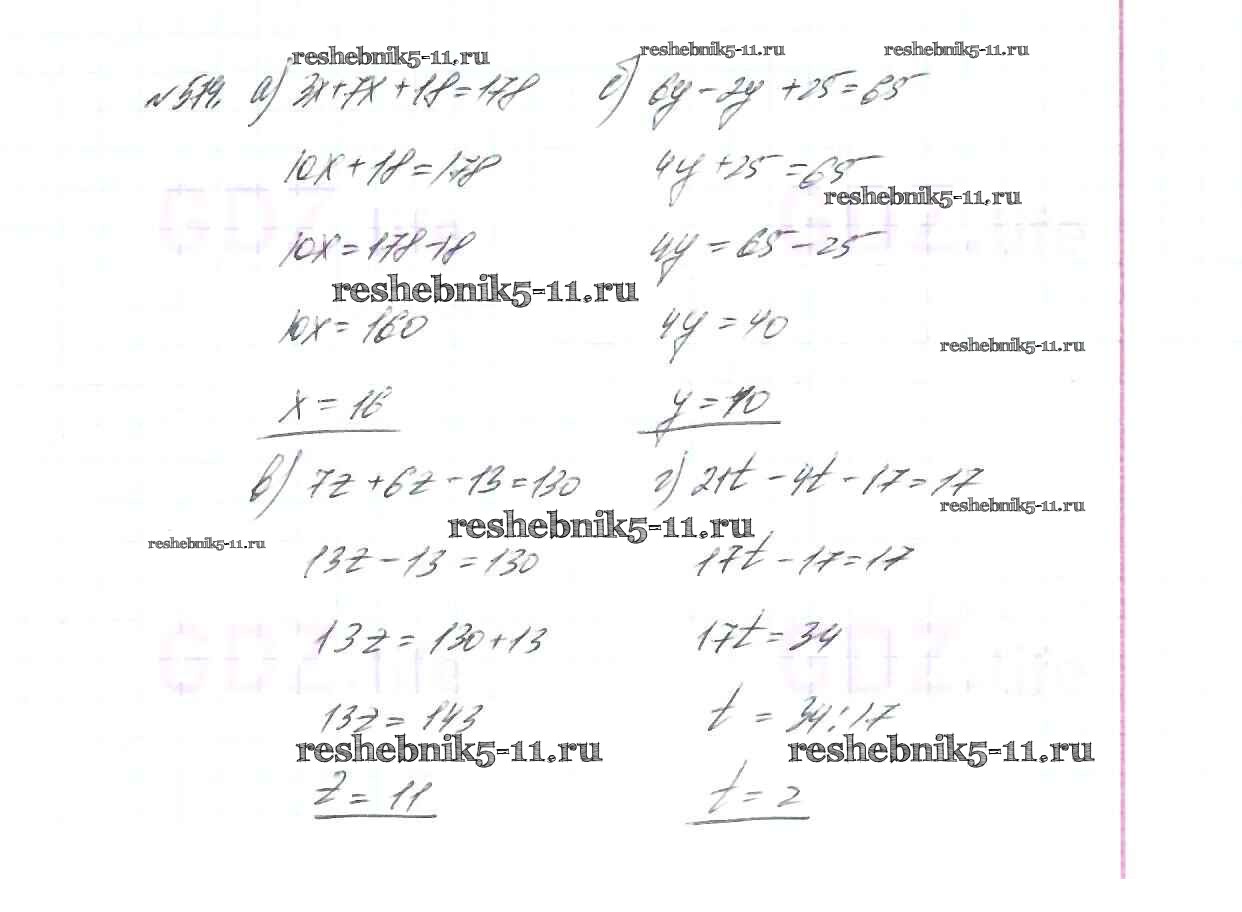 reshebnik5-11.ru reshebnik5-11.ru reshebnik5-11.ru
№579. а) 3x+7x+18=178 б) 6y-2y+25=65
10x+18=178 4y+25=65
reshebnik5-11.ru
10x=178-18 4y=65-25
reshebnik5-11.ru
10x=160 4y=40
reshebnik5-11.ru
x=16 y=10
в) 7z+6z-13=130 г) 21t-4t-17=17
reshebnik5-11.ru
reshebnik5-11.ru
reshebnik5-11.ru
13z-13=130 17t-17=17
13z=130+13 17t=34
13z=143 t=34:17
reshebnik5-11.ru reshebnik5-11.ru
z=11 t=2